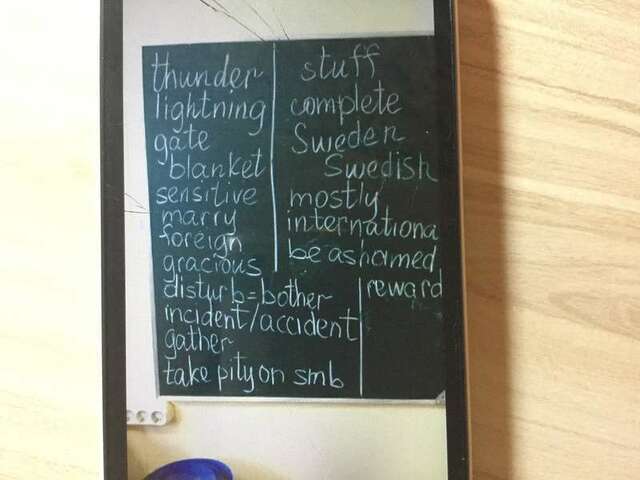 thunder
lightning
gate
blanket
sensitive
marry
foreign
gracious
disturb=bother
incident/accident
gather
take pity on smb
stuff
complete
Sweden
Swedish
mostly
internationa
be ashamed
reward